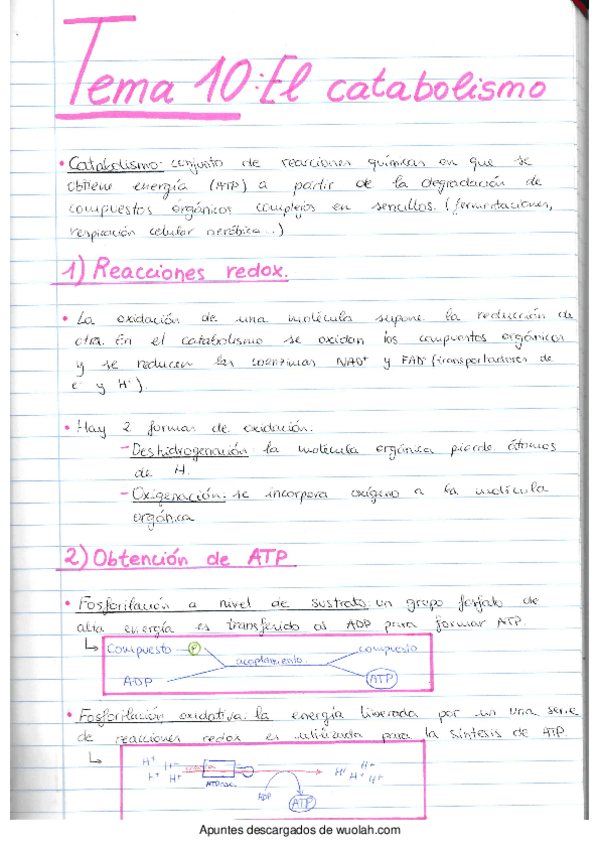 Tema 10: El catabolismo
• Catabolismo: conjunto de reacciones químicas en que se
obtiene energía (ATP) a partir de la degradación de
compuestos orgánicos complejos en sencillos. (fermentaciones,
respiración celular aeróbica...)
1) Reacciones redox.
• La oxidación de una molécula supone la reducción de
otra. En el catabolismo se oxidan los compuestos orgánicos
y se reducen las coenzimas NAD+ y FAD+ (transportadores de
e- y H+).
• Hay 2 formas de oxidación:
- Deshidrogenación: la molécula orgánica pierde átomos
de H.
- Oxigenación: se incorpora oxígeno a la molécula
orgánica
2) Obtención de ATP
• Fosforilación a nivel de sustrato: un grupo fosfato de
alta energía es transferido al ADP para formar ATP.
Compuesto - P compuesto
acoplamiento
ADP ATP
• Fosforilación oxidativa: la energía liberada por un una serie
de reacciones redox es utilizada para la síntesis de ATP.
H+ H+ H+ H+
H+ H+ H+ H+
ATPasa
ADP ATP
Apuntes descargados de wuolah.com